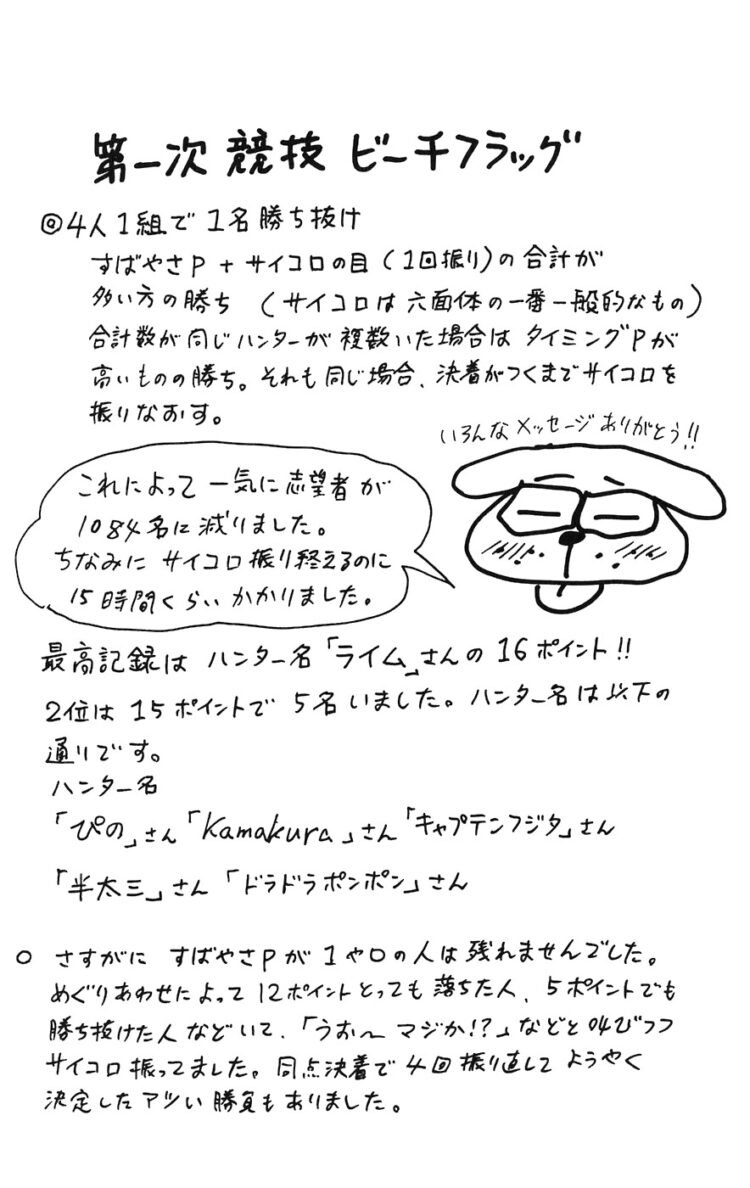 第一次 競技 ビーチフラッグ
◎4人1組で1名勝ち抜け
すばやさP + サイコロの目 (1回振り)の合計が
多い方の勝ち (サイコロは六面体の一番一般的なもの)
合計数が同じハンターが複数いた場合はタイミングPが
高いものの勝ち。それも同じ場合、決着がつくまでサイコロを
振りなおす。
いろんなメッセージありがとう!!
これによって一気に志望者が
1084名に減りました。
ちなみにサイコロ振り終えるのに
15時間くらいかかりました。
最高記録は ハンター名「ライム」さんの 16ポイント!!
2位は 15ポイントで 5名いました。ハンター名は以下の
通りです。
ハンター名
「ぴの」さん「Kamakura」さん「キャプテンフジタ」さん
「半太三」さん「ドラドラポンポン」さん
○ さすがに すばやさPが 1や0の人は残れませんでした。
めぐりあわせによって12ポイントとっても落ちた人、5ポイントでも
勝ち抜けた人などいて、「うお〜 マジか!?」などと叫びつつ
サイコロ振ってました。同点決着で4回振り直してようやく
決定したアツい勝負もありました。